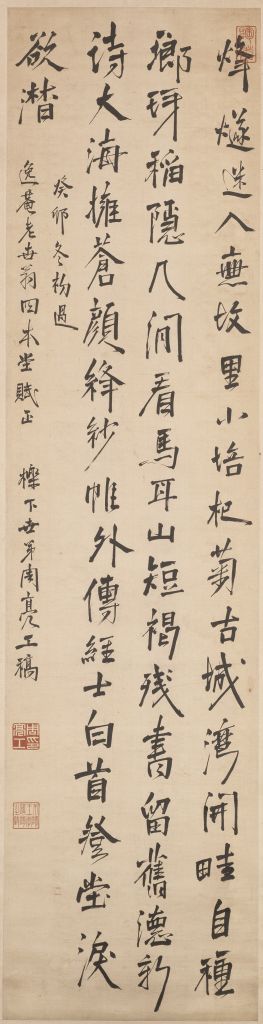 烽燧迷入無故里小培杞菊古城灣開畦自種
瑯玡稻隱几閒看馬耳山短褐殘書留舊德新
詩大海擁蒼顏絳紗帷外傳經士白首登堂淚
欲潸
癸卯冬杪過
逸菴老世翁四本堂賦正 櫟下世弟周亮工稿